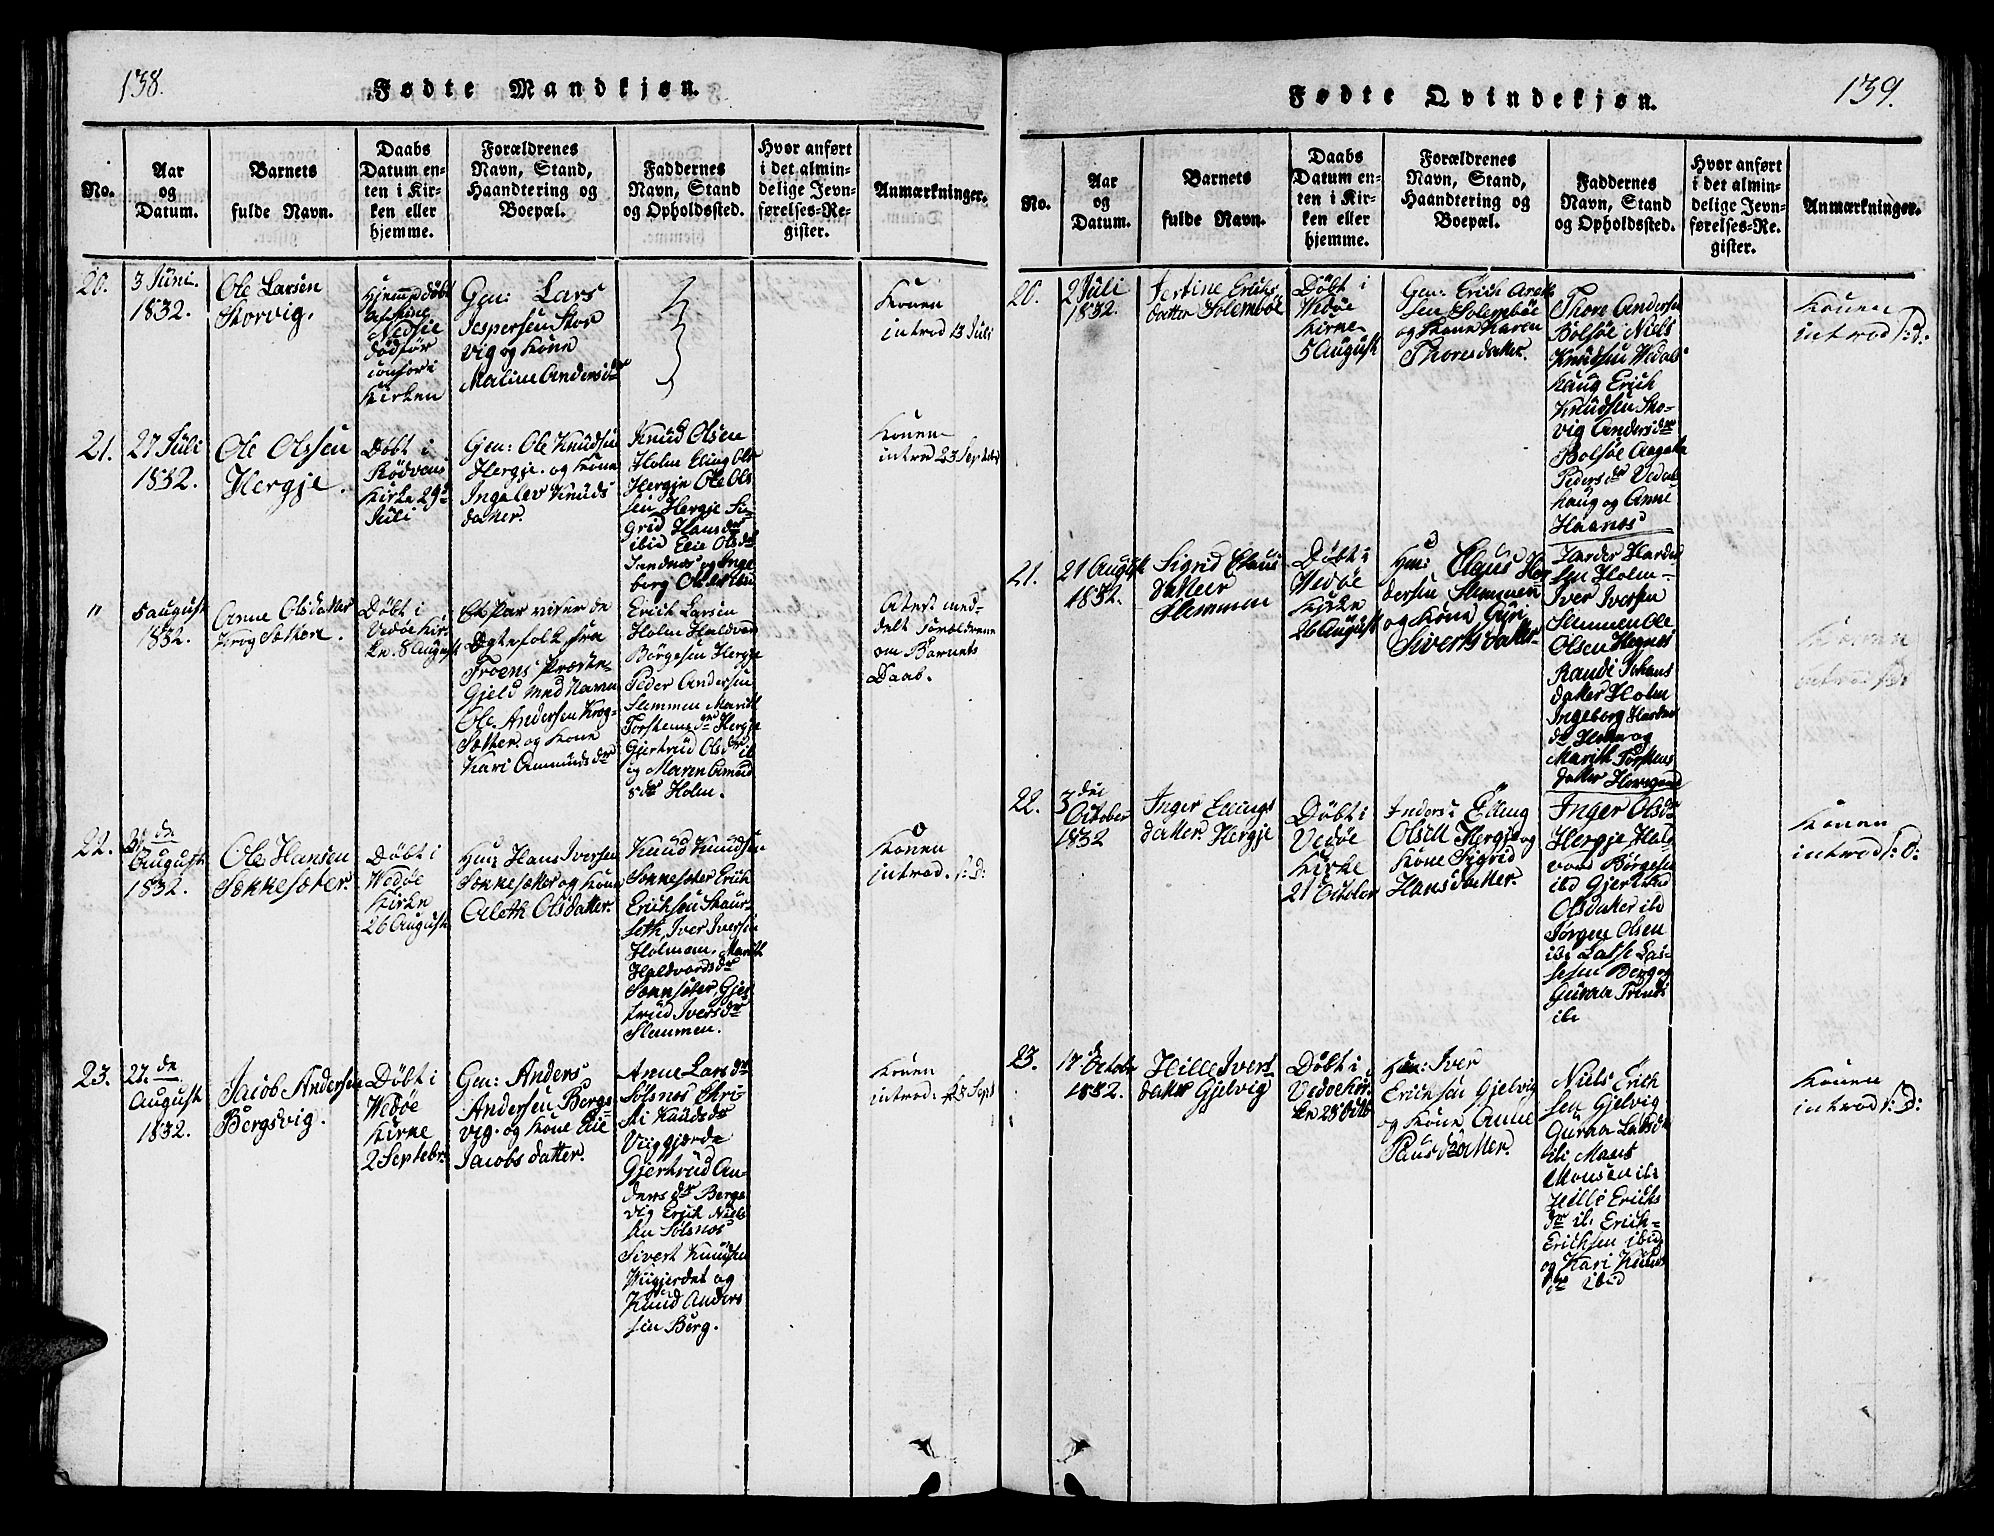 138.
Fødte Mandkjøn.
No.
Aar
og
Datum.
Barnets
fulde Navn.
Daabs
Datum en-
ten i Kir-
ken eller
hjemme.
Forældrenes
Navn, Stand,
Haandtering og
Boepæl.
Faddernes
Navn, Stand
og Opholdssted.
Hvor anført
i det almin-
delige Jevn-
førelses-Re-
gister.
Anmærkninger.
20.
3 Juni.
1832.
Ole Larsen
Storvig.
Hjemmedøbt
død før
Kirken
Gen: Lars
Jespersen Stor
vig og Kone
Maline Andersdr
Konen
introd 13 Juli
21.
27 Juli
1832.
Ole Olssen
Hergje.
Døbt i
Rødvens
Kirke 29de
Juli
Gen: Ole Knudsen
Hergje. og Kone
Ingelev Knuds
datter.
Knud Olsen
Holm Eling Ols
Hergje Ole Ols
sen Hergje Si-
grid Hansdr
ibid Elie Olsdr
Sandnes og Inge
berg Olsdr
Konen
introd 23 Septebr
"
5 august
1832.
Anne Olsdatter
Krog Sætter.
Døbt i
Vedøe Kir-
ke. 8 August
Et Par reisende
Ægtefolk fra
Troens Præste-
Gjeld med Navn
Ole Andersen Krog-
Sætter og Kone
Kari Amundsdr
Erich Larsen
Holm Haldvor
Børgesen Hergje
Peder Andersen
Slemmen Marith
Torstensdr Hergje
Gjertrud Olsdr ib
og Maren Amund
sdr Holm.
Atest med-
delt Forældrene
om Barnets
Daab.
22.
31 de
August
1832.
Ole Hansen
Søkkesæter.
Døbt i
Wedøe
Kirke
26 August
Huus Hans Iversen
Søkkesætter og Kone
Aleth Olsdatter.
Knud Knudsen
Søkkesæter Erich
Erichsen Skaur-
seth, Iver Iversen
Holmem, Marith
Haldvordsdr
Søkkesæter, Gjer
trud Iversdr
Slemmen.
Konen
introd. s: D:
23.
27. de
August
1832.
Jacob Andersen
Bergsvig.
Døbt i
Wedøe
Kirke
2 Septebr.
Gen: Anders
Andersen Bergs-
vig. og Kone Elie
Jacobsdatter.
Anne Larsdr
Sølsnes Chri-
sti Knudsdr
Viggjerde
Gjertrud An-
dersdr Bergs
vig Erich Niels
sen Sølsnes
Sivert Knudsen
Wigjerdet og
Knud Anders
sen Berg.
Konen
introd. 23 Sept
139.
Fødte Qvindekjøn.
No.
Aar
og
Datum.
Barnets
fulde Navn.
Daabs
Datum en-
ten i Kir-
ken eller
hjemme.
Forældrenes
Navn, Stand,
Haandtering og
Boepæl.
Faddernes
Navn, Stand
og Opholdssted.
Hvor anført
i det almin-
delige Jevn-
førelses-Re-
gister.
Anmærkninger.
20.
2 Juli
1832.
Jertine Erichs
datter Solemböe
Døbt i
Vedøe
Kirke
5 August
Gen: Erich
sen Solemböe
og Kone Karen
Thoresdatter.
Thore Andersen
Bolsøe Niels
Knudsen Vedals
haug Erich
Knudsen Sto-
vig Andersdr
Bolsøe Aagate
Pedersdr Vedals
haug og Anne
Haanes
Konen
introd s: D:
21.
21 August
1832.
Sigrid Claus
datter
Slemmen
Døbt i
Vedøe
Kirke
26 August
Huus: Claus Har
dersen Slemmen
og Kone Guri
Sivertsdatter
Harder Harder
sen Holm-
Iver Iversen
Slemmen Ole
Olsen Hegnes
Randi Johans
datter Holm
Ingeborg Harders
dr Holm og
Marith Torstens
datter Horsgaard
Konen
introd s: D:
22.
3 dei
October
1832
Inger Elings
datter Hergje
Døbt i
Vedøe
Kirke
21 October
Inders: Elling
Olsen Hergje og
Kone Sigrid
Hansdatter.
Inger Olsdr
Hergje Hald
vord Børgesen
ibd Gjertrud
Olsdatter ibi
Jørgen Olsen
ibi Lasse Las-
sesen Berg og
Gunnar
ibi
Konen
introd s: D:
23.
17 d October
1832.
Hille Ivers
datter Gjelvig
Døbt i
Vedøe Kir-
ke 28 Octb
Huus: Iver
Erichsen Gjelvig
og Kone Anne
Paulsdatter.
Niels Erich
sen Gjelvig
Guraa Larsdr
ibi Mons
Monsen ibi
Hille Erichs
dr ib. Erich
Erichsen ibid
og Kari Knuds
dr ibid
Konen
introd s: D: